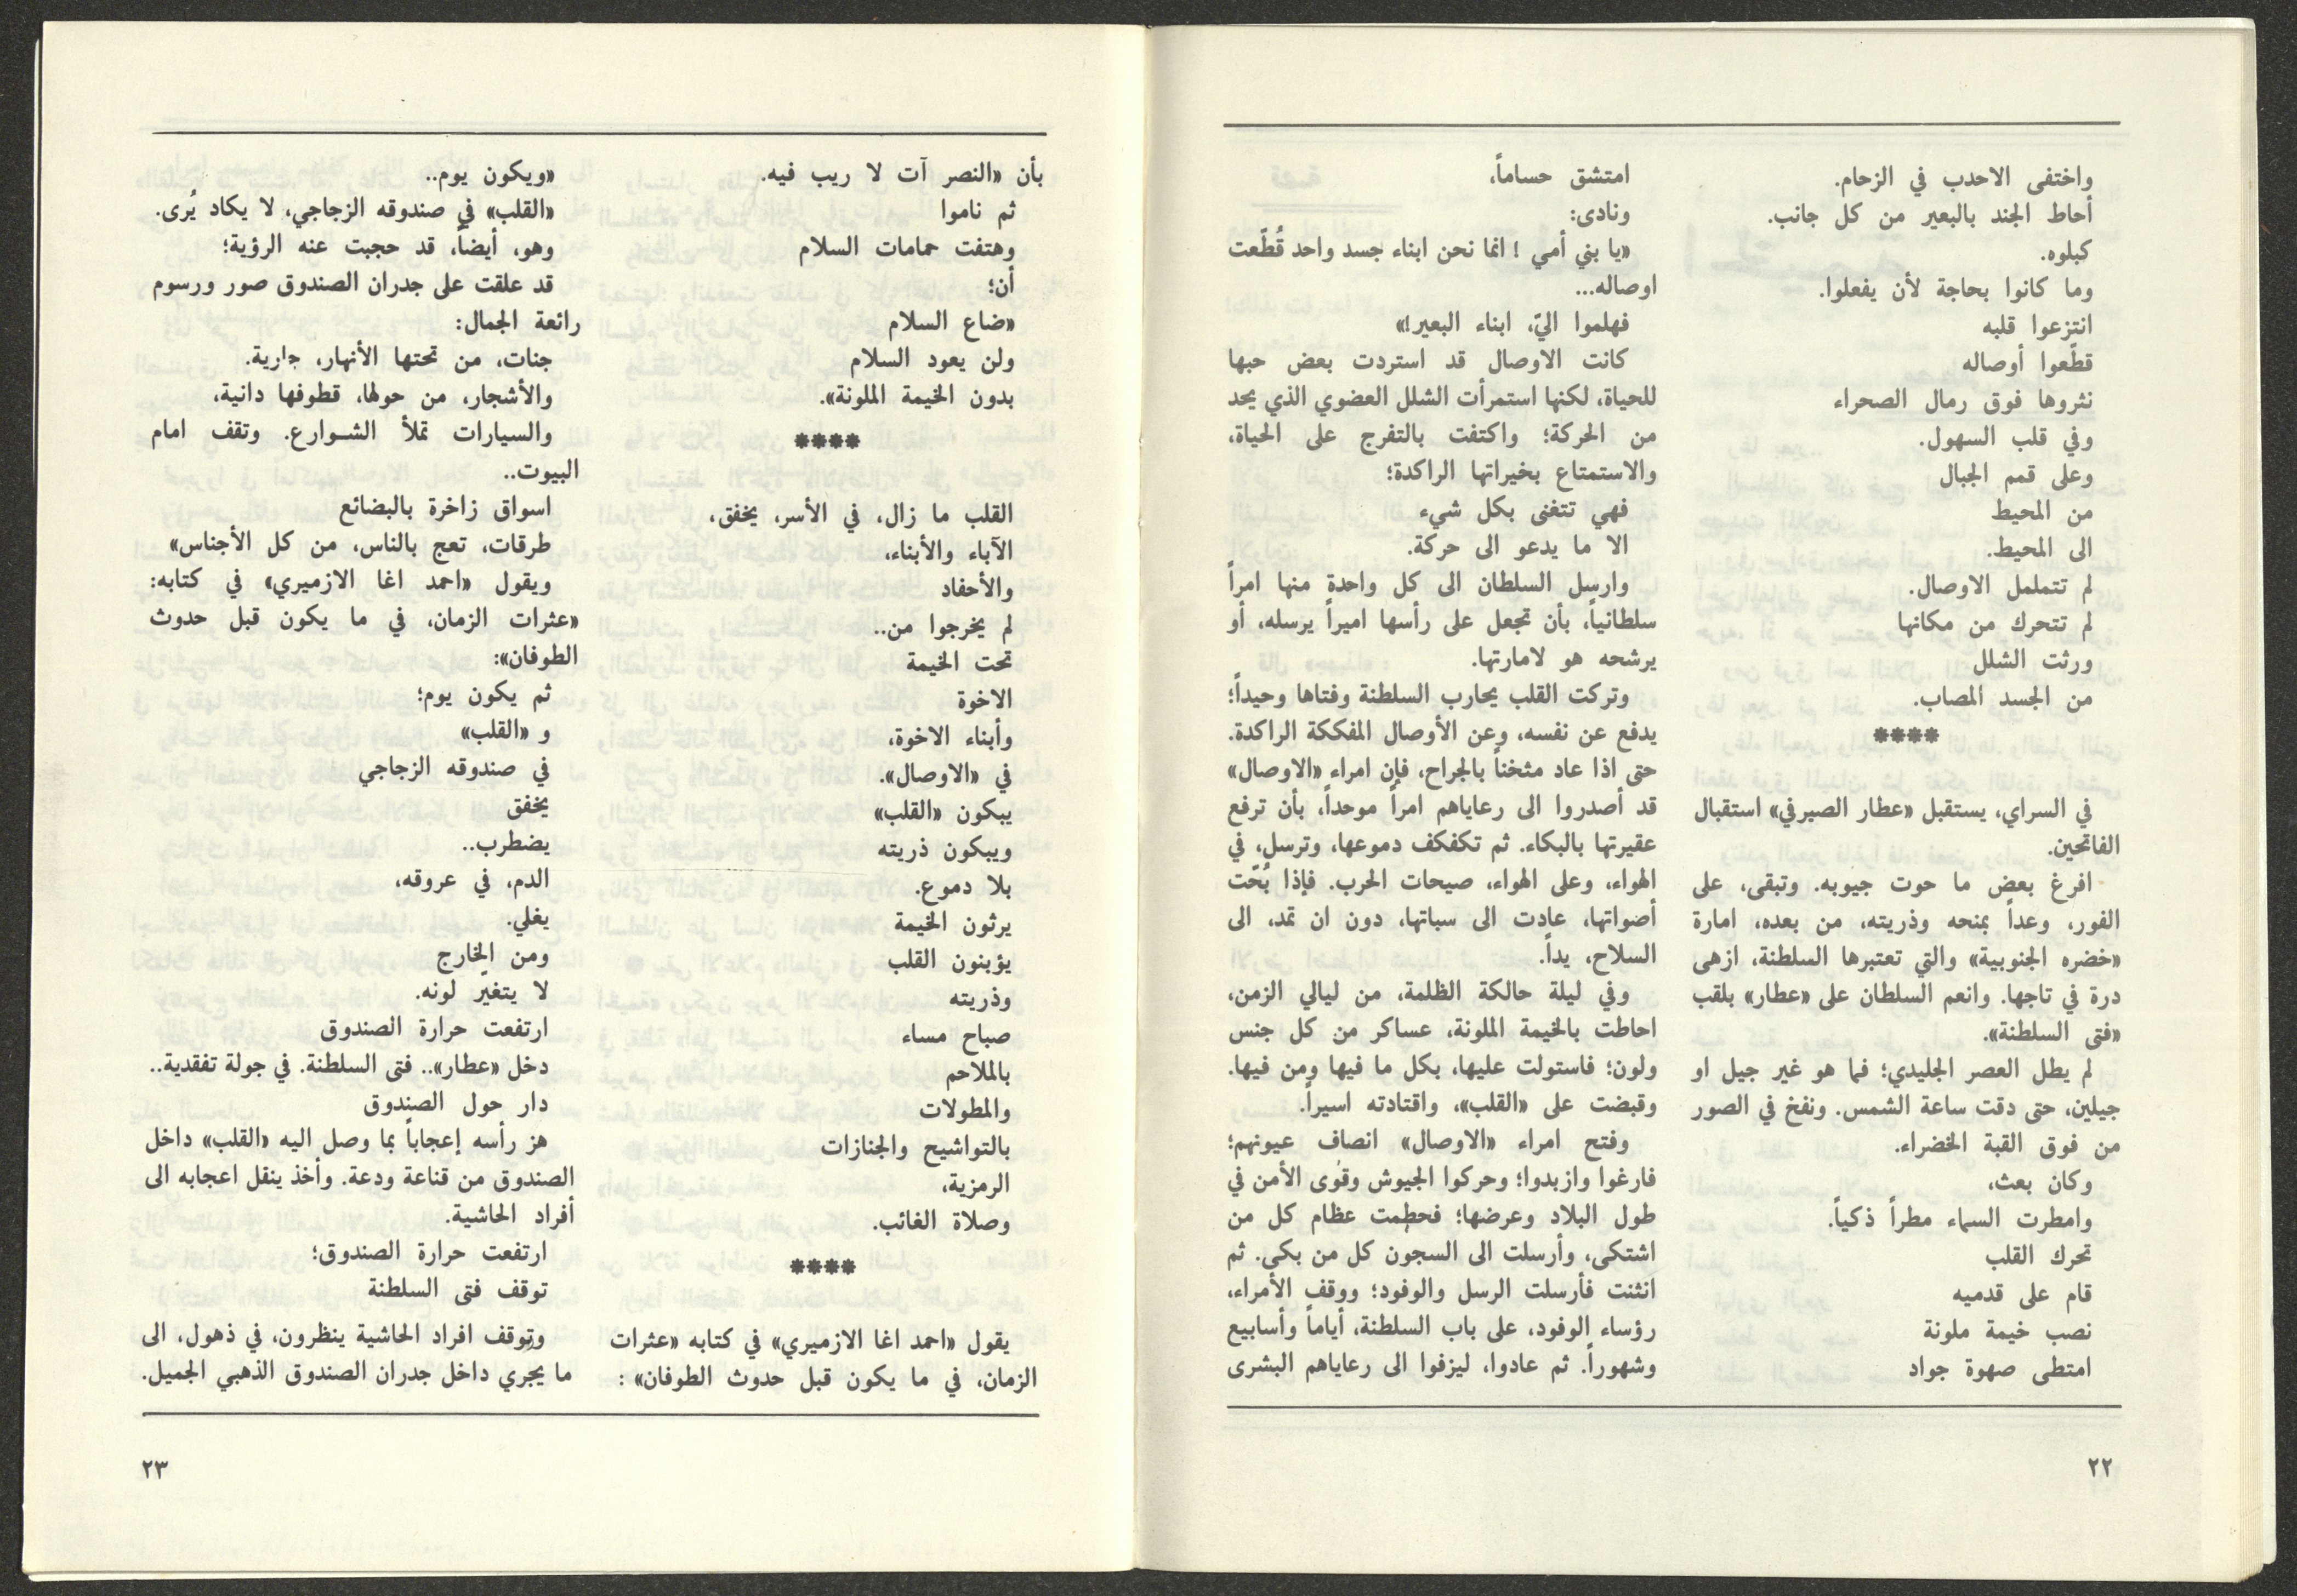 واختفى الاحدب في الزحام.
أحاط الجند بالبعير من كل جانب.
كبلوه.
وما كانوا بحاجة لأن يفعلوا.
انتزعوا قلبه
قطّعوا أوصاله
نثروها فوق رمال الصحراء
وفي قلب السهول.
وعلى قمم الجبال
من المحيط
الى المحيط.
لم تتململ الاوصال.
لم تتحرك من مكانها
ورثت الشلل
من الجسد المصاب.
****
في السراي، يستقبل «عطار الصيرفي» استقبال
الفاتحين.
افرغ بعض ما حوت جيوبه. وتبقى، على
الفور، وعداً بمنحه وذريته، من بعده، امارة
«خضره الجنوبية» والتي تعتبرها السلطنة، ازهى
درة في تاجها. وانعم السلطان على «عطار» بلقب
«فتى السلطنة».
لم يطل العصر الجليدي؛ فما هو غير جيل او
جيلين، حتى دقت ساعة الشمس. ونفخ في الصور
من فوق القبة الخضراء.
وكان بعث،
وامطرت السماء مطراً ذكياً.
تحرك القلب
قام على قدميه
نصب خيمة ملونة
امتطى صهوة جواد
امتشق حساماً،
ونادى:
«يا بني أمي ! انما نحن ابناء جسد واحد قُطّعت
اوصاله...
فهلموا اليّ، ابناء البعير!»
كانت الاوصال قد استردت بعض حبها
للحياة، لكنها استمرأت الشلل العضوي الذي يحد
من الحركة؛ واكتفت بالتفرج على الحياة،
والاستمتاع بخيراتها الراكدة؛
فهي تتغنى بكل شيء
الا ما يدعو الى حركة.
وارسل السلطان الى كل واحدة منها امراً
سلطانياً، بأن تجعل على رأسها اميراً يرسله، أو
يرشحه هو لامارتها.
وتركت القلب يحارب السلطنة وفتاها وحيداً؛
يدفع عن نفسه، وعن الأوصال المفككة الراكدة.
حتى اذا عاد مثخناً بالجراح، فإن امراء «الاوصال»
قد أصدروا الى رعاياهم امراً موحداً، بأن ترفع
عقيرتها بالبكاء. ثم تكفكف دموعها، وترسل، في
الهواء، وعلى الهواء، صيحات الحرب. فإذا بُحّت
أضواتها، عادت الى سباتها، دون ان تمد، الى
السلاح، يداً.
وفي ليلة حالكة الظلمة، من ليالي الزمن،
احاطت بالخيمة الملونة، عساكر من كل جنس
ولون؛ فاستولت عليها، بكل ما فيها ومن فيها.
وقبضت على «القلب»، واقتادته اسيراً.
وفتح امراء «الاوصال» انصاف عيونهم؛
فارغوا وازبدوا؛ وحركوا الجيوش وقوى الأمن في
طول البلاد وعرضها؛ فحطمت عظام كل من
اشتكى، وأرسلت الى السجون كل من بكى. ثم
انثنت فأرسلت الرسل والوفود؛ ووقف الأمراء،
رؤساء الوفود، على باب السلطنة، أياماً وأسابيع
وشهوراً. ثم عادوا، ليزفوا الى رعاياهم البشرى
٢٢
بأن «النصر آت لا ريب فيه.
ثم ناموا
وهتفت حمامات السلام
أن؛
«ضاع السلام
ولن يعود السلام
بدون الخيمة الملونة».
****
القلب ما زال، في الأسر، يخفق،
الآباء والأبناء،
والأحفاد
لم يخرجوا من..
تحت الخيمة
الاخوة
وأبناء الاخوة،
في «الاوصال».
يبكون «القلب»
ويبكون ذريته
بلا دموع.
يرثون الخيمة
يؤبنون القلب
وذريته
صباح مساء
بالملاحم
والمطولات
بالتواشيح والجنازات
الرمزية،
وصلاة الغائب.
****
يقول «احمد اغا الازميري» في كتابه «عثرات
الزمان، في ما يكون قبل حدوث الطوفان» :
«ويكون يوم..
«القلب» في صندوقه الزجاجي، لا يكاد يُرى.
وهو، أيضاً، قد حجبت عنه الرؤية؛
قد علقت على جدران الصندوق صور ورسوم
رائعة الجمال:
جنات، من تحتها الأنهار، جارية.
والأشجار، من حولها، قطوفها دانية،
والسيارات تملأ الشوارع. وتقف امام
البيوت..
اسواق زاخرة بالبضائع
طرقات، تعج بالناس، من كل الأجناس»
ويقول «احمد اغا الازميري» في كتابه:
«عثرات الزمان، في ما يكون قبل حدوث
الطوفان»:
ثم يكون يوم؛
و «القلب»
في صندوقه الزجاجي
يخفق
يضطرب..
الدم، في عروقه،
يغلي.
ومن الخارج
لا يتغير لونه.
ارتفعت حرارة الصندوق
دخل «عطار».. فتى السلطنة. في جولة تفقدية..
دار حول الصندوق
هز رأسه إعجاباً بما وصل اليه «القلب» داخل
الصندوق من قناعة ودعة. وأخذ ينقل اعجابه الى
أفراد الحاشية.
ارتفعت حرارة الصندوق؛
توقف فتى السلطنة
وتوقف افراد الحاشية ينظرون، في ذهول، الى
ما يجري داخل جدران الصندوق الذهبي الجميل.
٢٣